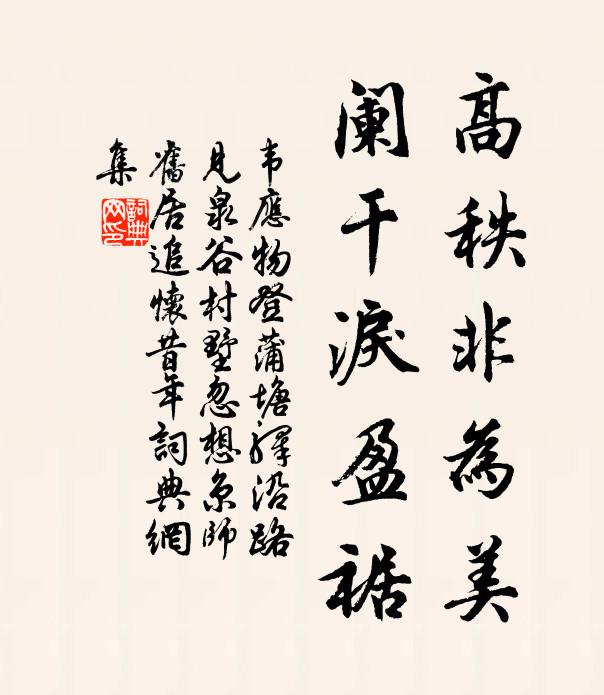 高秩非為美
阑干淚盈裾
韦應物登蒲塘驛沿路
見泉谷村墅忽想京師
舊居追懷昔年詞典網
集
詞典
网印